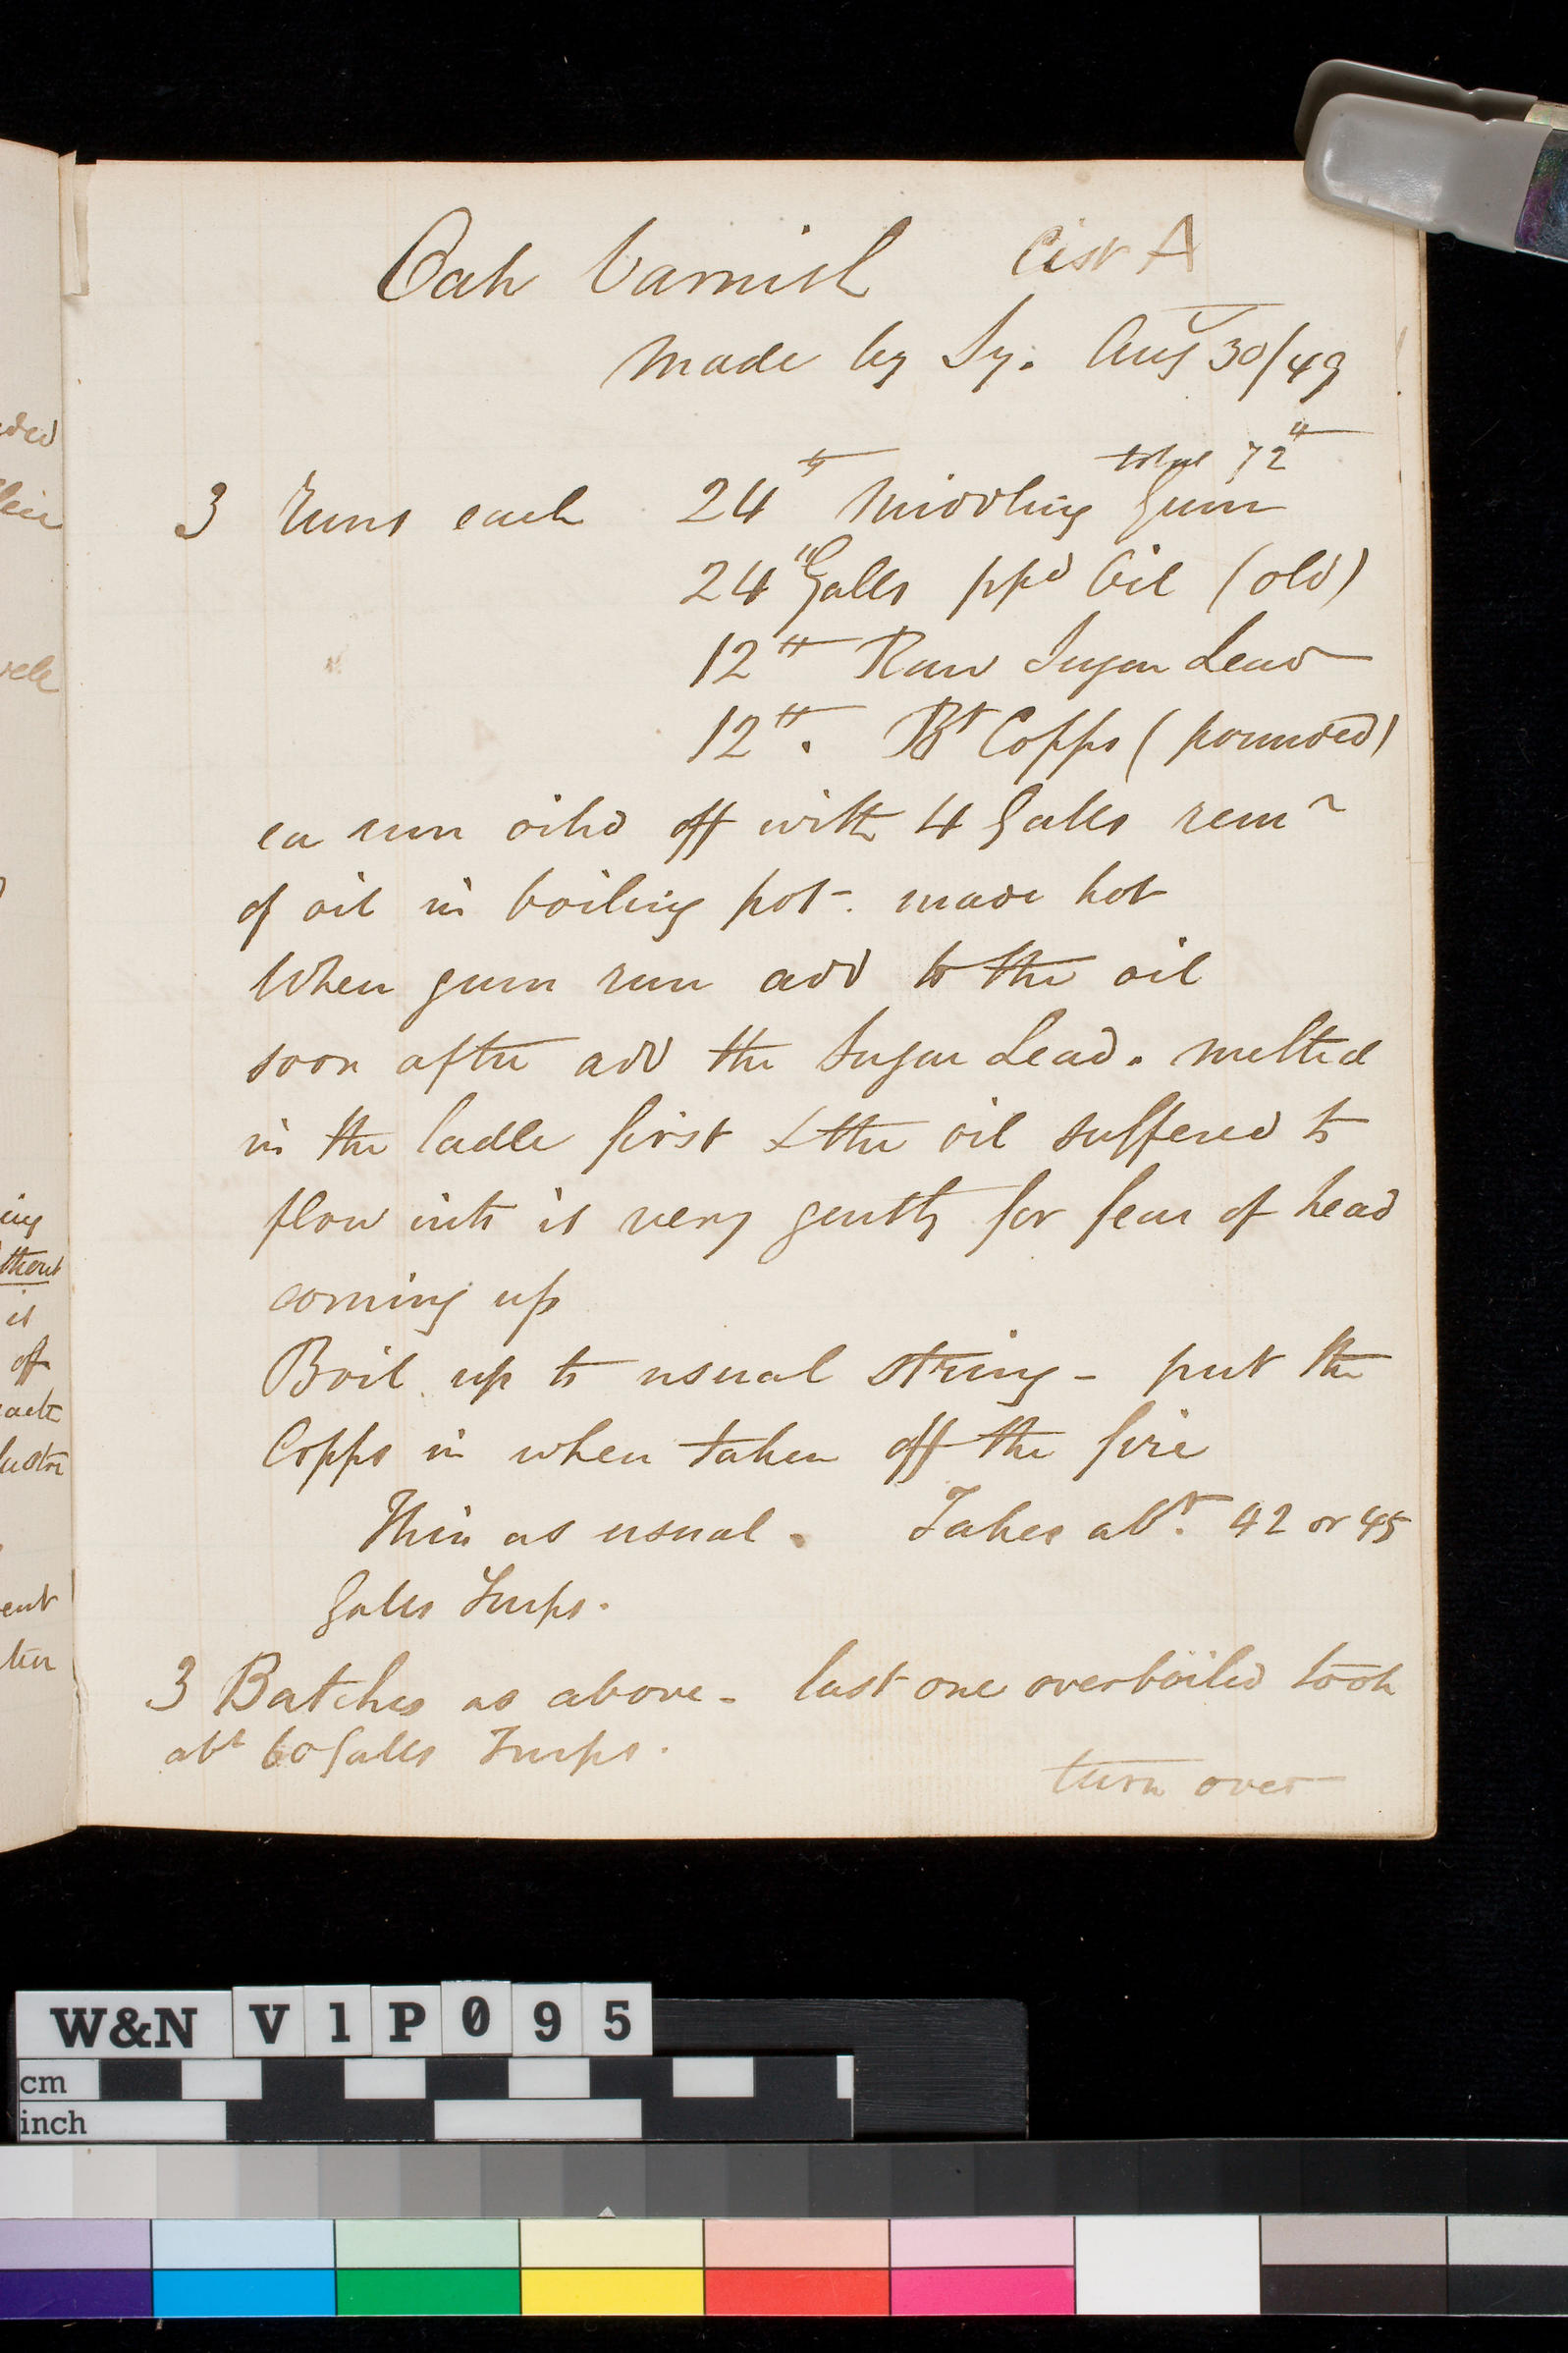 Oak Varnish Cist A
Made by Sy. Aug 30/49
total 72 lb
3 Runs each 24 lb Middling Gum
24 Galls ppd Oil (old)
12 lb Raw Sugar Lead
12 lb. Bt Copps (pounded)
ea run oild off with 4 Galls remr
of oil in boiling pot. made hot
When gum run add to the oil
soon after add the Sugar Lead. melted
in the ladle first & the oil suffered to
flow into it very gently for fear of head
coming up
Boil up to usual string - put the
Copps in when taken off the fire
Thin as usual. Takes abt. 42 or 45
Galls Turps.
3 Batches as above - last one overboiled took
abt 60 Galls Turps.
turn over
ing
thout
it
off
ent
W&N V1P095
cm
inch